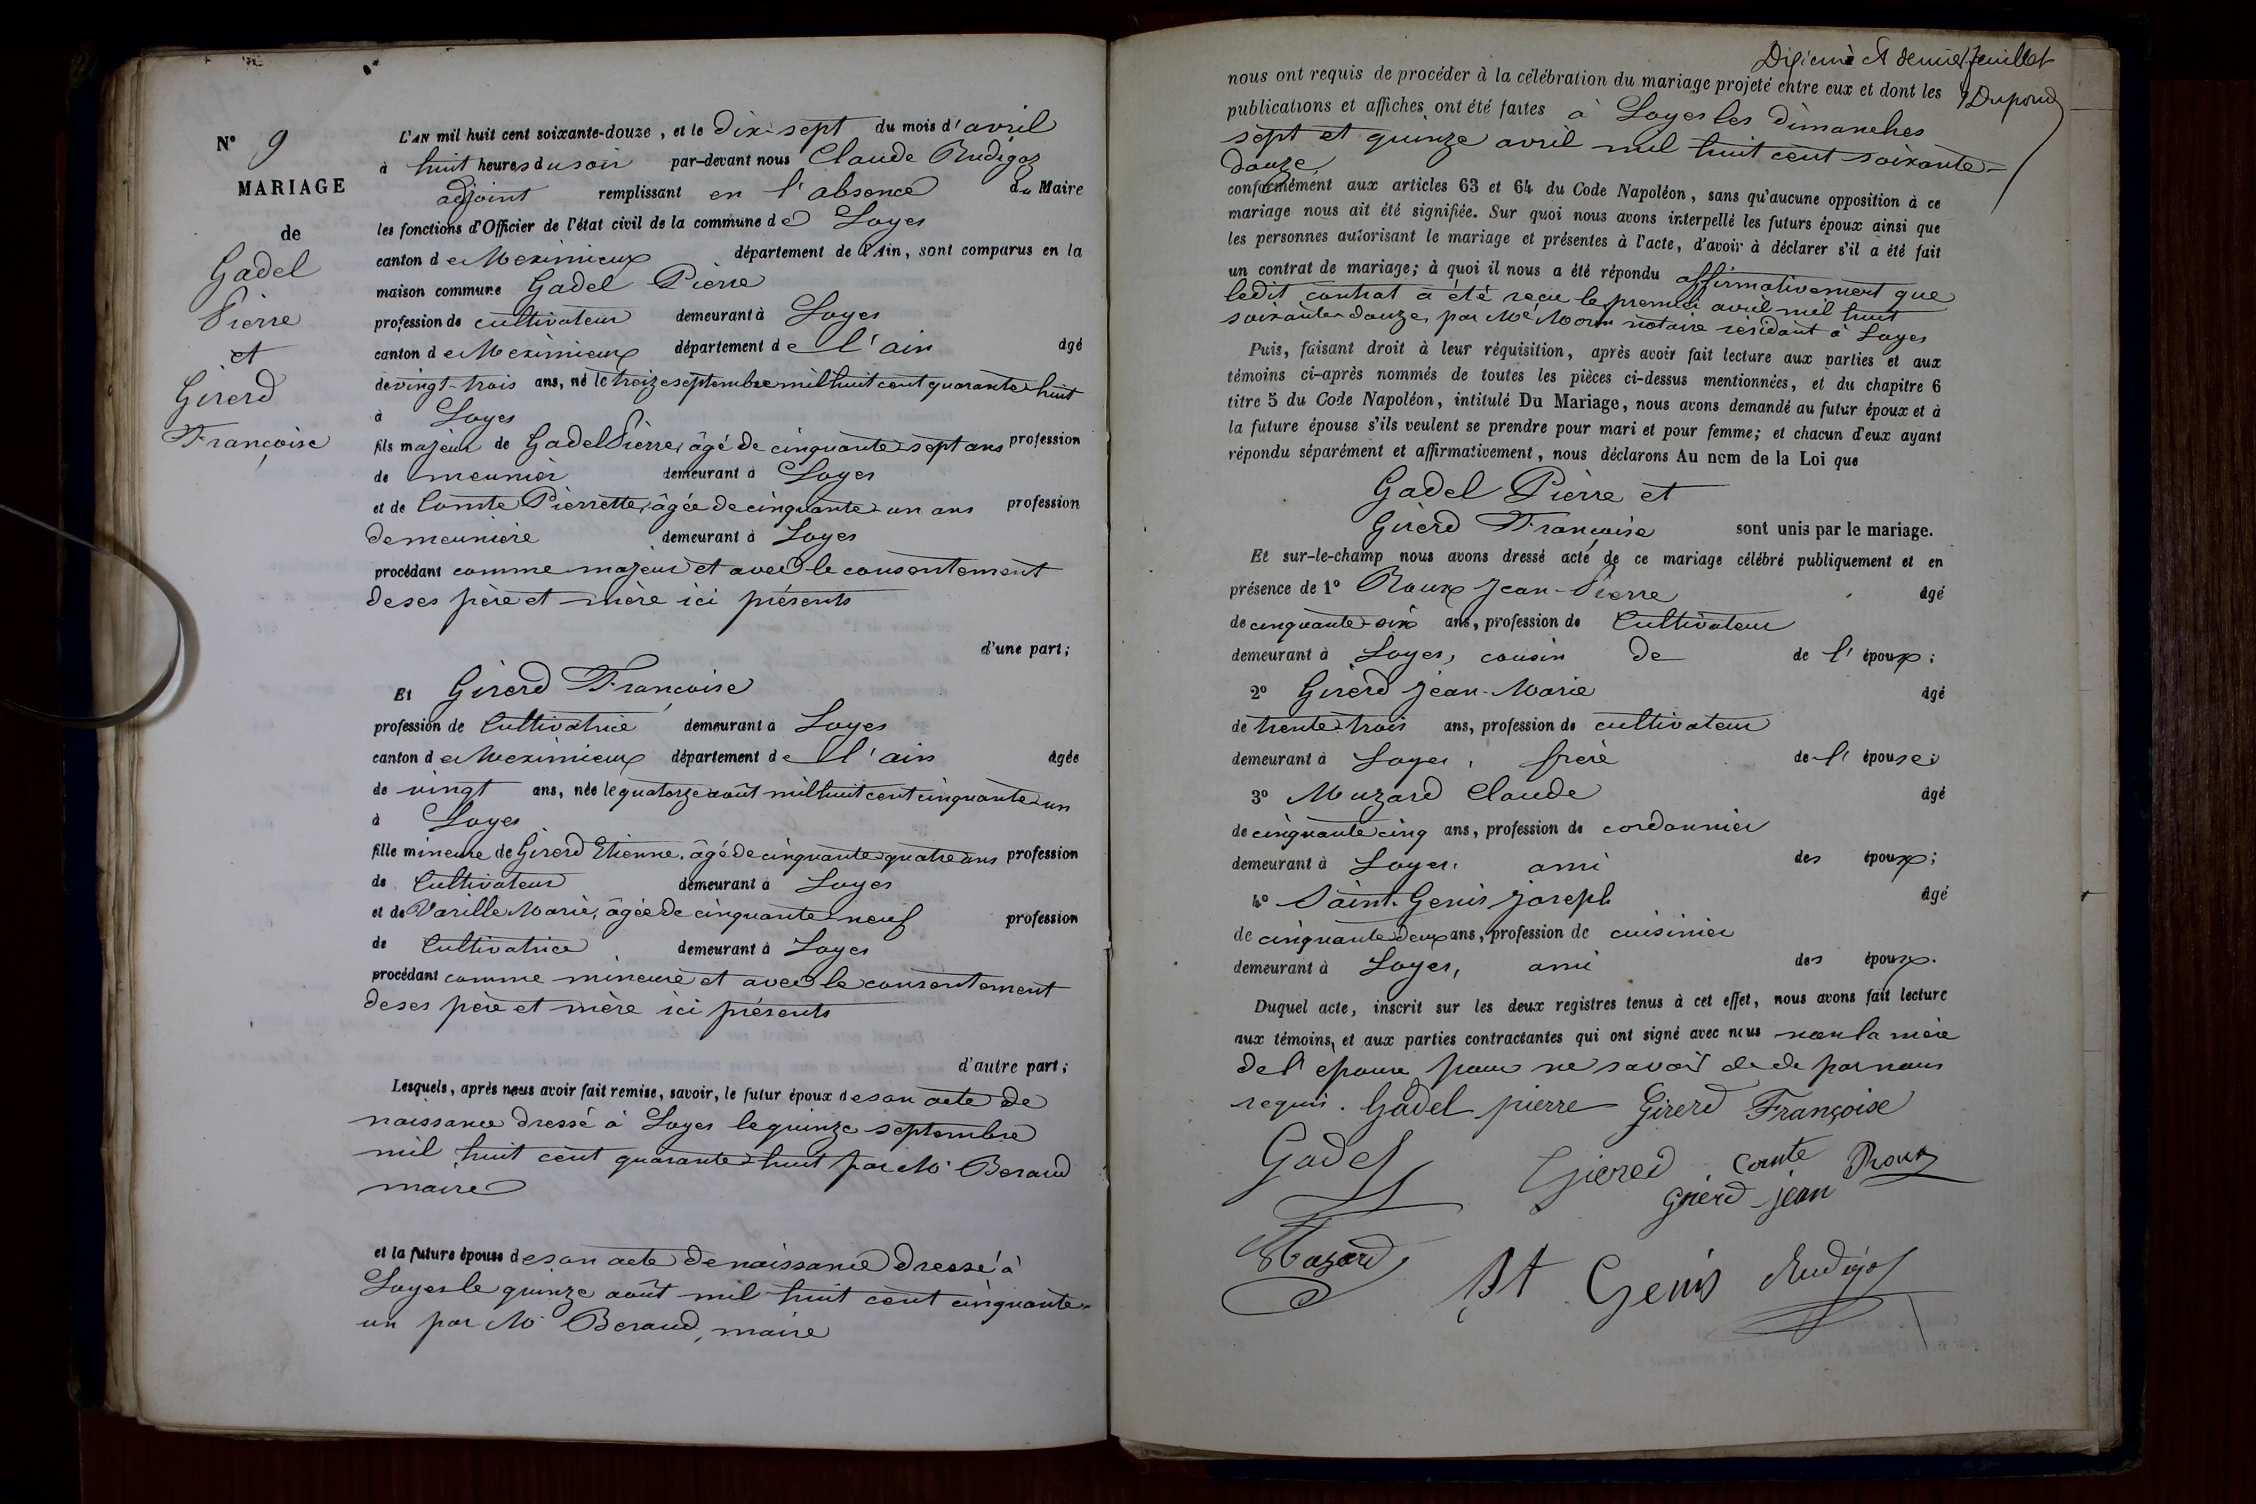 N° 9
MARIAGE
de
Gadel
Pierre
et
Girerd
Françoise
L'AN mil huit cent soixante-douze, et le dix-sept du mois d'avril
à huit heures du soir par-devant nous Claude Rudigoz
adjoint remplissant en l'absence du Maire
les fonctions d'Officier de l'état civil de la commune de Loyes
canton de Meximieux département de l'Ain, sont comparus en la
maison commune Gadel Pierre
profession de cultivateur demeurant à Loyes
canton de Meximieux département de l'ain âgé
de vingt-trois ans, né le treize septembre mil huit cent quarante-huit
à Loyes
fils majeur de Gadel Pierre, âgé de cinquante-sept ans profession
de meunier demeurant à Loyes
et de Comte Pierrette, âgée de cinquante-un ans profession
de meunière demeurant à Loyes
procédant comme majeur et avec le consentement
de ses père et mère ici présents
d'une part;
Et Girerd Françoise
profession de Cultivatrice demeurant à Loyes
canton de Meximieux département de l'ain âgée
de vingt ans, née le quatorze août mil huit cent cinquante-un
à Loyes
fille mineure de Girerd Etienne, âgé de cinquante-quatre ans profession
de Cultivateur demeurant à Loyes
et de Varille Marie, âgée de cinquante-neuf profession
de Cultivatrice demeurant à Loyes
procédant comme mineure et avec le consentement
de ses père et mère ici présents
d'autre part;
Lesquels, après nous avoir fait remise, savoir, le futur époux de son acte de
naissance dressé à Loyes le quinze septembre
mil huit cent quarante-huit par Mr Beraud
maire
et la future épouse de son acte de naissance dressé à
Loyes le quinze août mil huit cent cinquante-
un par Mr Beraud, maire
Dixième et dernier feuillet
Dupond
nous ont requis de procéder à la célébration du mariage projeté entre eux et dont les
publications et affiches ont été faites à Loyes les dimanches
sept et quinze avril mil huit cent soixante-
douze
conformément aux articles 63 et 64 du Code Napoléon, sans qu'aucune opposition à ce
mariage nous ait été signifiée. Sur quoi nous avons interpellé les futurs époux ainsi que
les personnes autorisant le mariage et présentes à l'acte, d'avoir à déclarer s'il a été fait
un contrat de mariage; à quoi il nous a été répondu affirmativement que
ledit contrat a été reçu le premier avril mil huit
soixante-douze, par Me Morin notaire résidant à Loyes
Puis, faisant droit à leur réquisition, après avoir fait lecture aux parties et aux
témoins ci-après nommés de toutes les pièces ci-dessus mentionnées, et du chapitre 6
titre 5 du Code Napoléon, intitulé Du Mariage, nous avons demandé au futur époux et à
la future épouse s'ils veulent se prendre pour mari et pour femme; et chacun d'eux ayant
répondu séparément et affirmativement, nous déclarons Au nom de la Loi que
Gadel Pierre et
Girerd Françoise sont unis par le mariage.
Et sur-le-champ nous avons dressé acte de ce mariage célébré publiquement et en
présence de 1° Roux Jean-Pierre âgé
de cinquante-six ans, profession de Cultivateur
demeurant à Loyes, cousin de de l'époux;
2° Girerd Jean-Marie âgé
de trente-trois ans, profession de cultivateur
demeurant à Loyes, frère de l'épouse;
3° Muzard Claude âgé
de cinquante cinq ans, profession de cordonnier
demeurant à Loyes, ami des époux;
4° Saint-Genis Joseph âgé
de cinquante-deux ans, profession de cuisinier
demeurant à Loyes, ami des époux.
Duquel acte, inscrit sur les deux registres tenus à cet effet, nous avons fait lecture
aux témoins, et aux parties contractantes qui ont signé avec nous non la mère
de l'épouse pour ne savoir de de par nous
requis. Gadel pierre Girerd Françoise
Gadel Girerd Comte Roux
Girerd jean
Muzard St Genis Rudigoz